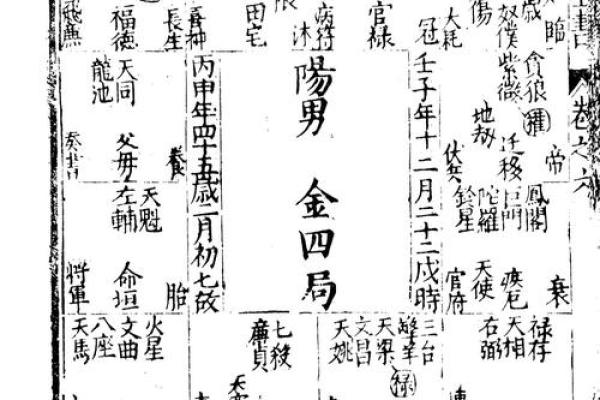 卷之六
臨
帝
衰
歲
貪狼 權
鳳閣
奴僕 紫微
遷移 巨門
疾厄
傷
地劫
陀羅
天使
大耗
伏兵
鈴星
官府
冠
壬子年十二月二十二戌時
官祿
病符
沐
陽男 金四局
田宅
丙申年四十五歲二月初七故
長生
養
胎
福德
天同 父母
天魁
左輔 命垣
飛廉
龍池
奏書
將軍
祿存
天相
右弼
三台
擎羊
天梁 祿
文昌
天姚
七殺
廉貞
火星
文曲
八座
天馬